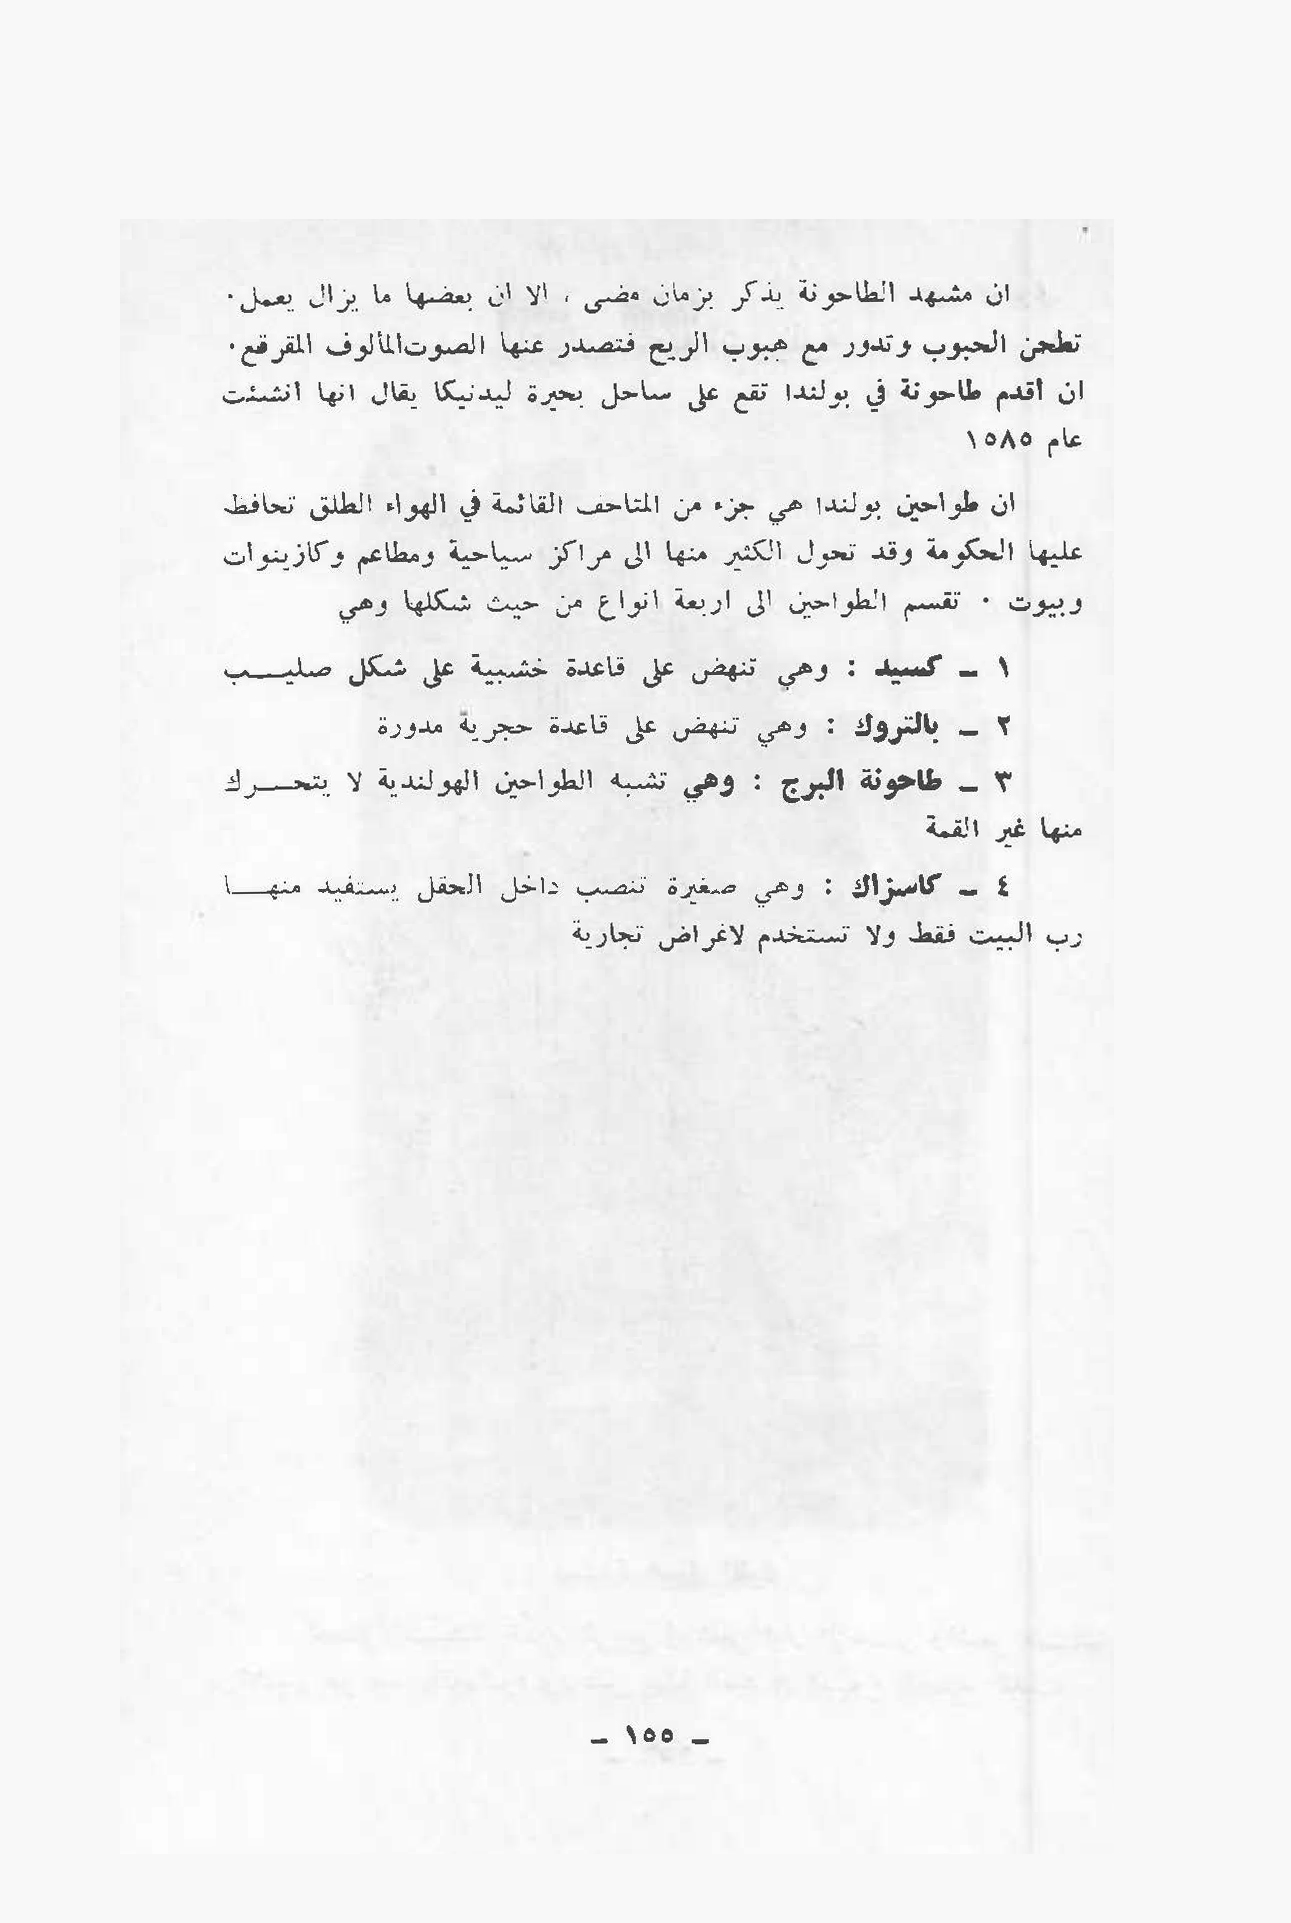 ان مشهد الطاحونة يذكر بزمان مضى ، الا ان بعضها ما يزال يعمل٠
تطحن الحبوب وتدور مع هبوب الريح فتصدر عنها الصوت المألوف المقرقع٠
ان أقدم طاحونة في بولندا تقع على ساحل بحيرة ليدنيكا يقال انها انشئت
عام ١٥٨٥
ان طواحين بولندا هي جزء من المتاحف القائمة في الهواء الطلق تحافظ
عليها الحكومة وقد تحول الكثير منها الى مراكز سياحية ومطاعم وكازينوات
وبيوت ٠ تقسم الطواحين الى اربعة انواع من حيث شكلها وهي
١ ــ كسيد : وهي تنهض على قاعدة خشبية على شكل صليـــب
٢ ــ بالتروك : وهي تنهض على قاعدة حجرية مدورة
٣ ــ طاحونة البرج : وهي تشبه الطواحين الهولندية لا يتحـــرك
منها غير القمة
٤ ــ كاسزاك : وهي صغيرة تنصب داخل الحقل يستفيد منهـــا
رب البيت فقط ولا تستخدم لاغراض تجارية
ــ ١٥٥ ــ